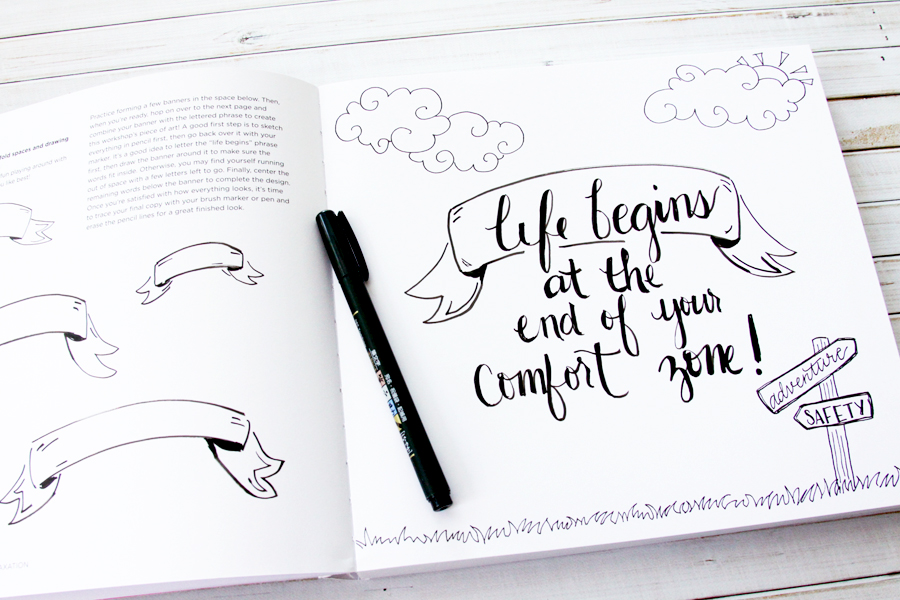 fold spaces and drawing
fun playing around with
Practice forming a few banners in the space below. Then,
when you're ready, hop on over to the next page and
combine your banner with the lettered phrase to create
this workshop's piece of art! A good first step is to sketch
everything in pencil first, then go back over it with your
marker. It's a good idea to letter the "life begins" phrase
first, then draw the banner around it to make sure the
words fit inside. Otherwise, you may find yourself running
out of space with a few letters left to go. Finally, center the
remaining words below the banner to complete the design.
Once you're satisfied with how everything looks, it's time
to trace your final copy with your brush marker or pen and
erase the pencil lines for a great finished look.
life begins
at the
end of your
comfort zone!
adventure
SAFETY